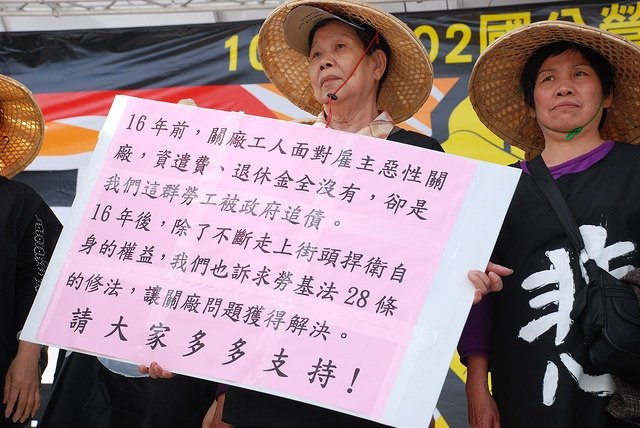 10 02國公營
16年前，關廠工人面對雇主惡性關
廠，資遣費、退休金全沒有，卻是
我們這群勞工被政府追債。
16年後，除了不斷走上街頭捍衛自
身的權益，我們也訴求勞基法28條
的修法，讓關廠問題獲得解決。
請大家多多支持！
悲